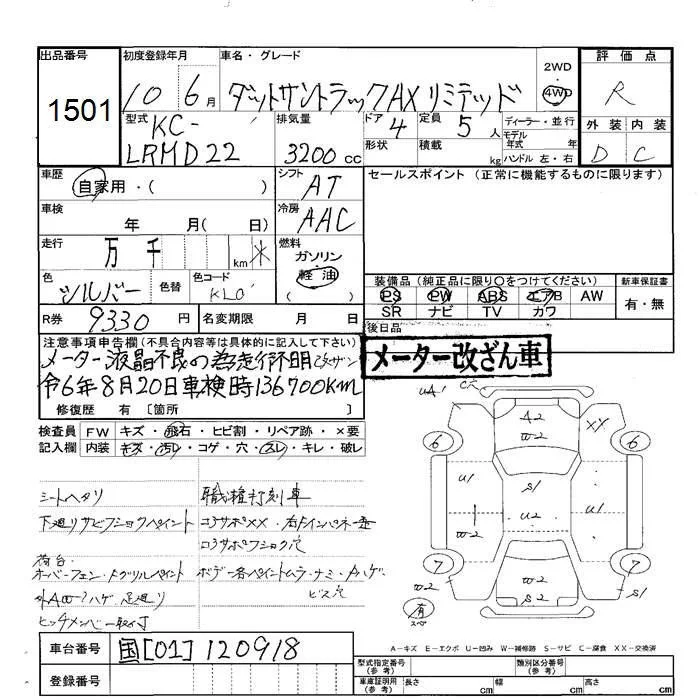 出品番号
1501
初度登録年月
10 6月
車名・グレード
ダットサントラックAXリミテッド
2WD
4WD
評価点
R
型式
KC-
LRMD22
排気量
3200cc
ドア 4
形状
定員 5人
積載 kg
ディーラー・並行
モデル年式 年
ハンドル 左・右
外装 内装
D C
車歴
自家用・( )
シフト AT
セールスポイント(正常に機能するものに限ります)
車検
年 月( 日)
冷房 AAC
走行
万 千 km
燃料
ガソリン
軽油
色
シルバー
色替
色コード
KL0
装備品(純正品に限り○をつけてください)
PS PW ABS エアB AW
SR ナビ TV カワ
新車保証書
有・無
R券 9330円
名変期限 月 日
後日品
注意事項申告欄(不具合内容等は具体的に記入して下さい)
メーター液晶不良の為走行不明 改ザン
令6年8月20日車検時136700Km
修復歴 有〔箇所 〕
メーター改ざん車
検査員記入欄
FW キズ・飛石・ヒビ割・リペア跡・×要
内装 キズ・汚レ・コゲ・穴・スレ・キレ・破レ
シートヘタリ
職権打刻車
下廻リサビフショクペイント
コアサポXX・右Fインパネ一歪
コアサポフショク穴
荷台
オーバーフェン・Fグリルペイント
ボデー各ペイントムラ・ナミ・Aハゲ
ビス穴
足廻り
ヒッチメンバー取付
UA1
C穴
A2
W2
XX
6
6
U1
S1
1
U2
U1
W2
7
7
W2
W2
S2
U1
有
スペア
車台番号
国[01]120918
登録番号
A-キズ E-エクボ U-凹み W-補修跡 S-サビ C-腐食 XX-交換済
型式指定番号(参考)
類別区分番号(参考)
車庫証明用(参考) 長さ cm 幅 cm 高さ cm